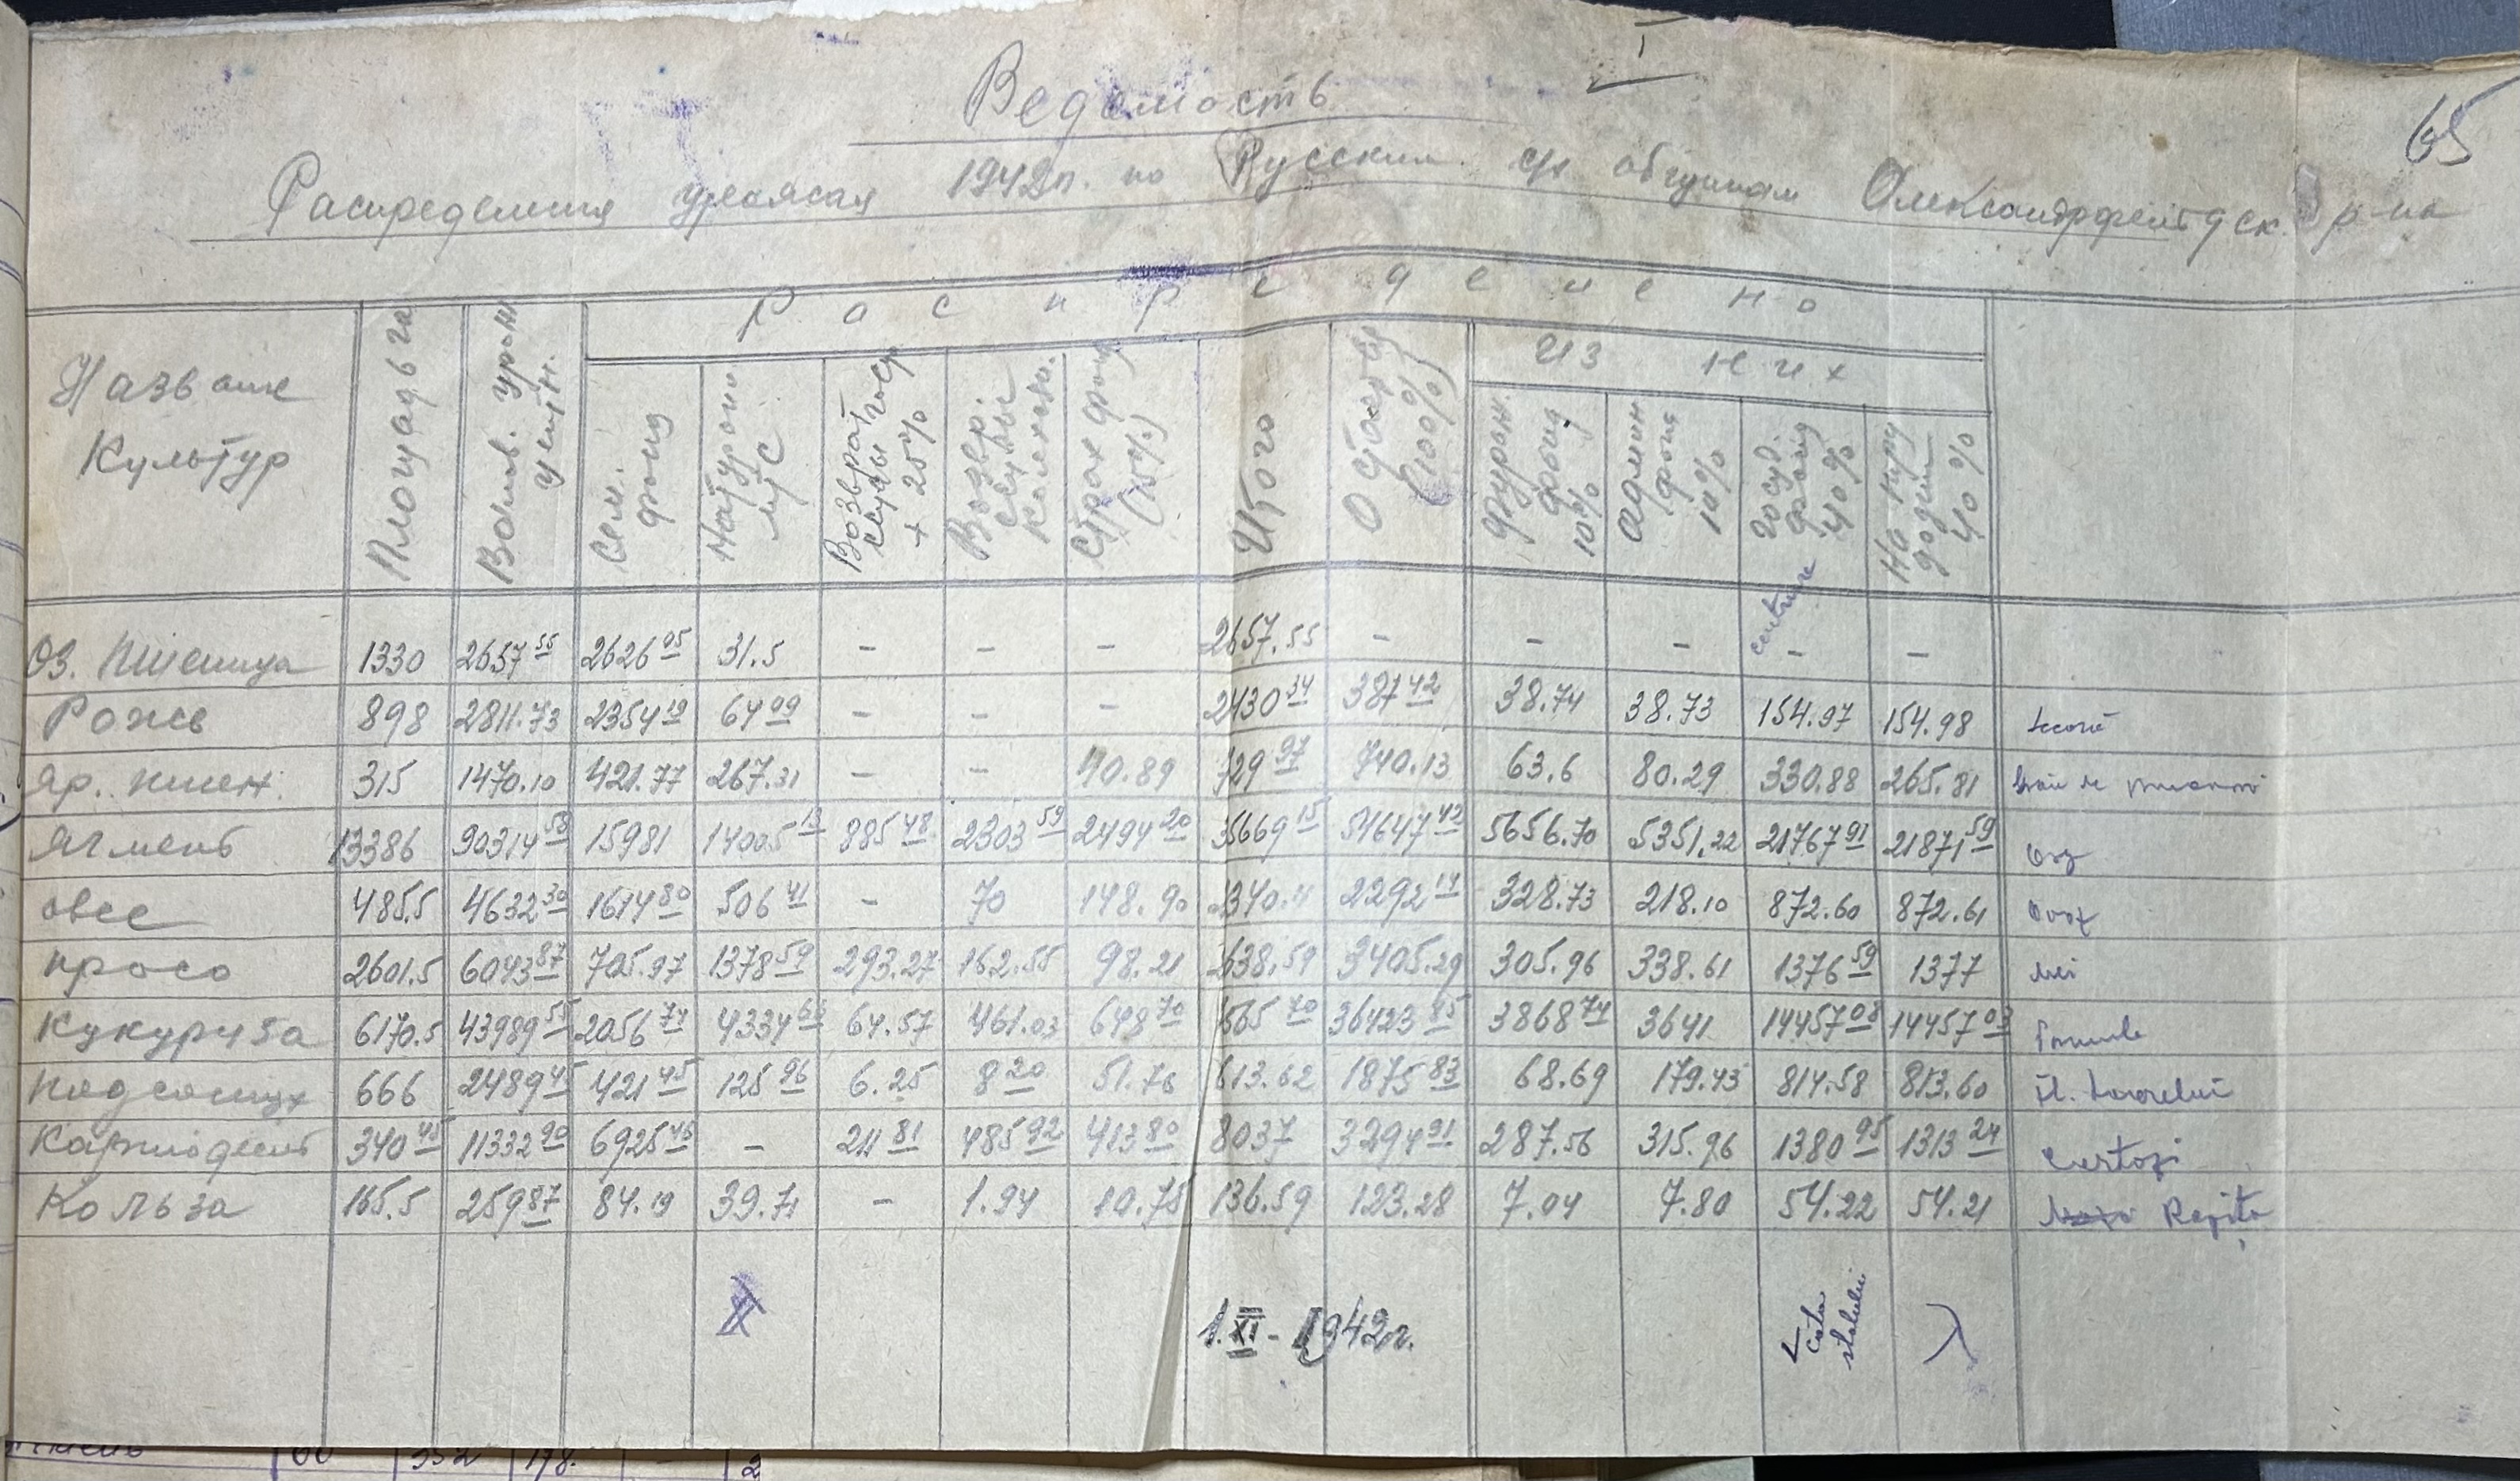 I
65
Ведомость
Распределения урожая 1942г. по Русским с/х общинам Александрфельдск. р-на
Название Культур | Площадь в га | Валов. урож. цент. | Распределено
Сем. фонд | Натуропл. МТС | Возврат госуд. ссуды + 25% | Возвр. ссуды | Страх фонд (15%) | Итого | Остаток (100%) | Из них
Фураж. фонд 10% | Админ фонд 10% | Госуд. фонд 40% | На труддни 40%
centnere
Оз. пшеница 1330 2657 55 2626 05 31.5 - - - 2657.55 - - - - -
Рожь 898 2811.73 2354 19 64 99 - - - 2430 34 387 42 38.74 38.73 154.97 154.98 Secară
Яр. пшен. 315 1470.10 421.77 267.31 - - 40.89 729 97 740.13 63.6 80.29 330.88 265.81
Ячмень 13386 90314 58 15981 14005 13 885 48 2303 59 2494 20 35669 15 54647 42 5656.70 5351.22 21767 91 21871 59 Orz
овес 485.5 4632 30 1614 80 506 41 - 70 148.90 2340.11 2292 17 328.73 218.10 872.60 872.61 Ovăz
просо 2601.5 6043 87 705.97 1378 59 293.27 162.55 98.21 2638.59 3405.29 305.96 338.61 1376 59 1377 Mei
Кукуруза 6170.5 43989 55 2056 74 4334 66 64.57 461.03 648 70 36423 85 3868 74 3641 14457 08 14457 03
Подсолнух 666 2489 45 421 45 125 96 6.25 8 20 51.76 613.62 1875 83 68.69 179.43 814.58 813.60 fl. soarelui
Картофель 340 45 11332 90 6925 46 - 211 81 485 92 413 80 8037 3294 91 287.56 315.96 1380 95 1313 24 Cartofi
Кольза 165.5 259 87 84.19 39.71 - 1.94 10.75 136.59 123.28 7.04 7.80 54.22 54.21 Rapiță
1.XI-1942г.
cota statului